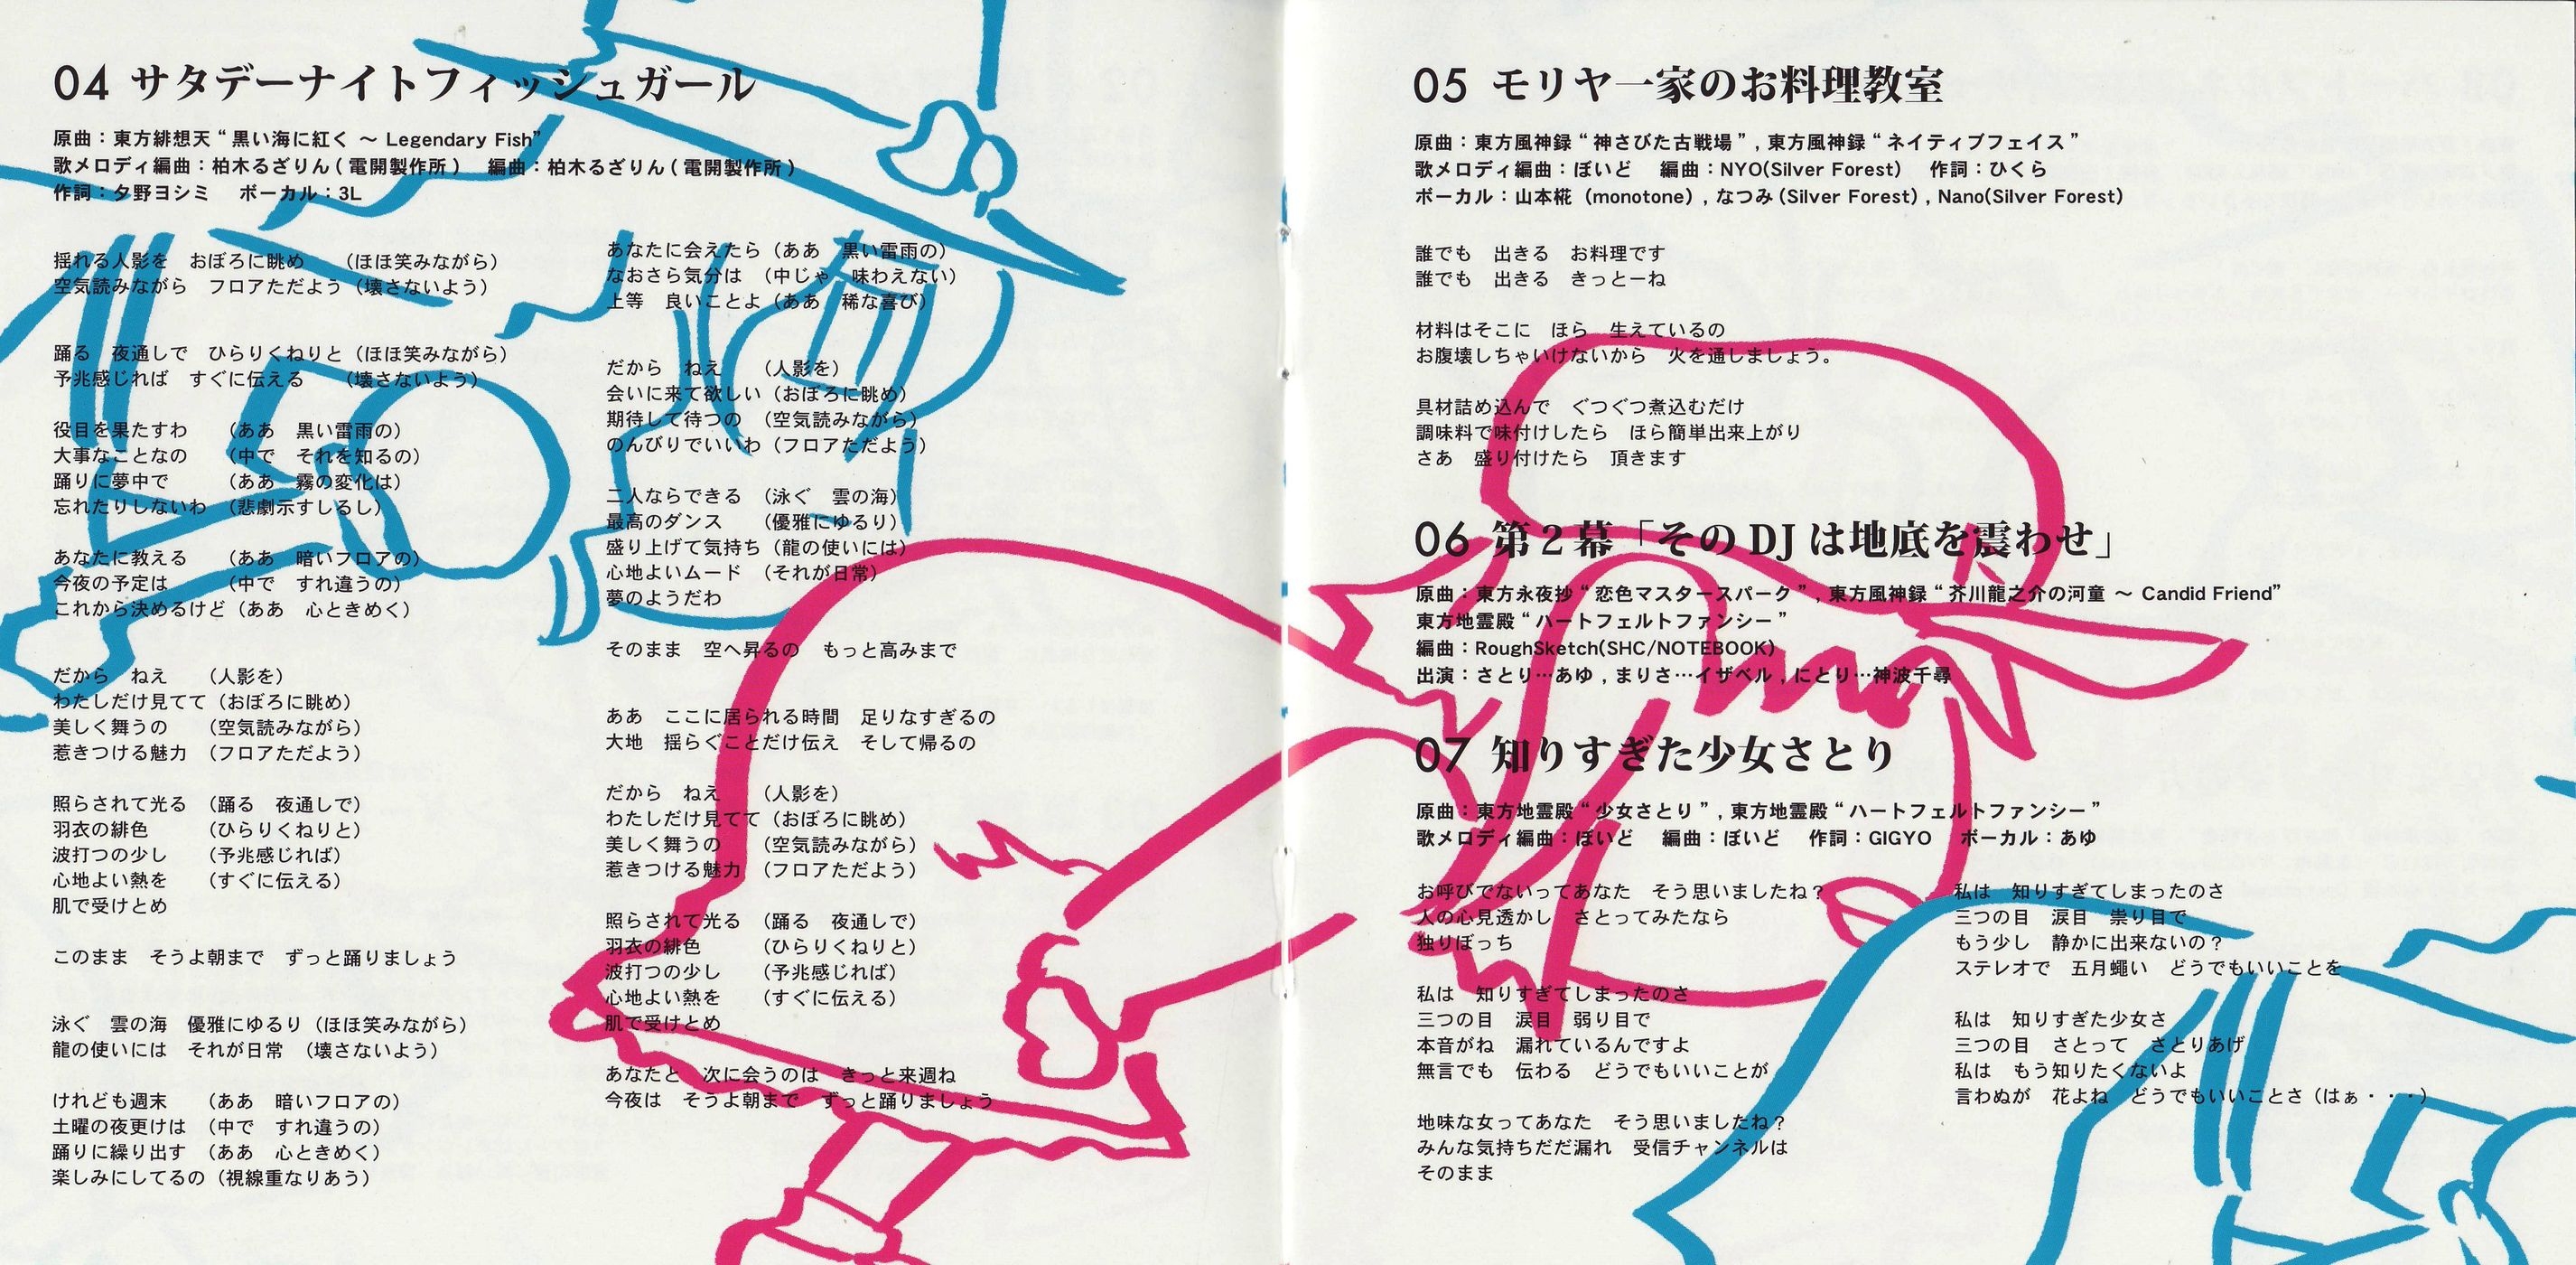 04 サタデーナイトフィッシュガール
原曲：東方緋想天“黒い海に紅く ～ Legendary Fish”
歌メロディ編曲：柏木るざりん(電開製作所)　編曲：柏木るざりん(電開製作所)
作詞：夕野ヨシミ　ボーカル：3L
揺れる人影を　おぼろに眺め　（ほほ笑みながら）
空気読みながら　フロアただよう（壊さないよう）
踊る　夜通しで　ひらりくねりと（ほほ笑みながら）
予兆感じれば　すぐに伝える　（壊さないよう）
役目を果たすわ　（ああ　黒い雷雨の）
大事なことなの　（中で　それを知るの）
踊りに夢中で　（ああ　霧の変化は）
忘れたりしないわ　（悲劇示すしるし）
あなたに教える　（ああ　暗いフロアの）
今夜の予定は　（中で　すれ違うの）
これから決めるけど（ああ　心ときめく）
だから　ねえ　（人影を）
わたしだけ見てて（おぼろに眺め）
美しく舞うの　（空気読みながら）
惹きつける魅力　（フロアただよう）
照らされて光る　（踊る　夜通しで）
羽衣の緋色　（ひらりくねりと）
波打つの少し　（予兆感じれば）
心地よい熱を　（すぐに伝える）
肌で受けとめ
このまま　そうよ朝まで　ずっと踊りましょう
泳ぐ　雲の海　優雅にゆるり（ほほ笑みながら）
龍の使いには　それが日常　（壊さないよう）
けれども週末　（ああ　暗いフロアの）
土曜の夜更けは　（中で　すれ違うの）
踊りに繰り出す　（ああ　心ときめく）
楽しみにしてるの（視線重なりあう）
あなたに会えたら（ああ　黒い雷雨の）
なおさら気分は　（中じゃ　味わえない）
上等　良いことよ（ああ　稀な喜び）
だから　ねえ　（人影を）
会いに来て欲しい（おぼろに眺め）
期待して待つの　（空気読みながら）
のんびりでいいわ（フロアただよう）
二人ならできる　（泳ぐ　雲の海）
最高のダンス　（優雅にゆるり）
盛り上げて気持ち（龍の使いには）
心地よいムード　（それが日常）
夢のようだわ
そのまま　空へ昇るの　もっと高みまで
ああ　ここに居られる時間　足りなすぎるの
大地　揺らぐことだけ伝え　そして帰るの
だから　ねえ　（人影を）
わたしだけ見てて（おぼろに眺め）
美しく舞うの　（空気読みながら）
惹きつける魅力　（フロアただよう）
照らされて光る　（踊る　夜通しで）
羽衣の緋色　（ひらりくねりと）
波打つの少し　（予兆感じれば）
心地よい熱を　（すぐに伝える）
肌で受けとめ
あなたと　次に会うのは　きっと来週ね
今夜は　そうよ朝まで　ずっと踊りましょう
05 モリヤ一家のお料理教室
原曲：東方風神録“神さびた古戦場”, 東方風神録“ネイティブフェイス”
歌メロディ編曲：ぼいど　編曲：NYO(Silver Forest)　作詞：ひくら
ボーカル：山本椛 (monotone) , なつみ(Silver Forest) , Nano(Silver Forest)
誰でも　出きる　お料理です
誰でも　出きる　きっとーね
材料はそこに　ほら　生えているの
お腹壊しちゃいけないから　火を通しましょう。
具材詰め込んで　ぐつぐつ煮込むだけ
調味料で味付けしたら　ほら簡単出来上がり
さあ　盛り付けたら　頂きます
06 第2幕「そのDJは地底を震わせ」
原曲：東方永夜抄“恋色マスタースパーク”, 東方風神録“芥川龍之介の河童 ～ Candid Friend”
東方地霊殿“ハートフェルトファンシー”
編曲：RoughSketch(SHC/NOTEBOOK)
出演：さとり…あゆ , まりさ…イザベル , にとり…神波千尋
07 知りすぎた少女さとり
原曲：東方地霊殿“少女さとり”, 東方地霊殿“ハートフェルトファンシー”
歌メロディ編曲：ぼいど　編曲：ぼいど　作詞：GIGYO　ボーカル：あゆ
お呼びでないってあなた　そう思いましたね？
人の心見透かし　さとってみたなら
独りぼっち
私は　知りすぎてしまったのさ
三つの目　涙目　弱り目で
本音がね　漏れているんですよ
無言でも　伝わる　どうでもいいことが
地味な女ってあなた　そう思いましたね？
みんな気持ちだだ漏れ　受信チャンネルは
そのまま
私は　知りすぎてしまったのさ
三つの目　涙目　祟り目で
もう少し　静かに出来ないの？
ステレオで　五月蠅い　どうでもいいことを
私は　知りすぎた少女さ
三つの目　さとって　さとりあげ
私は　もう知りたくないよ
言わぬが　花よね　どうでもいいことさ（はぁ・・・）